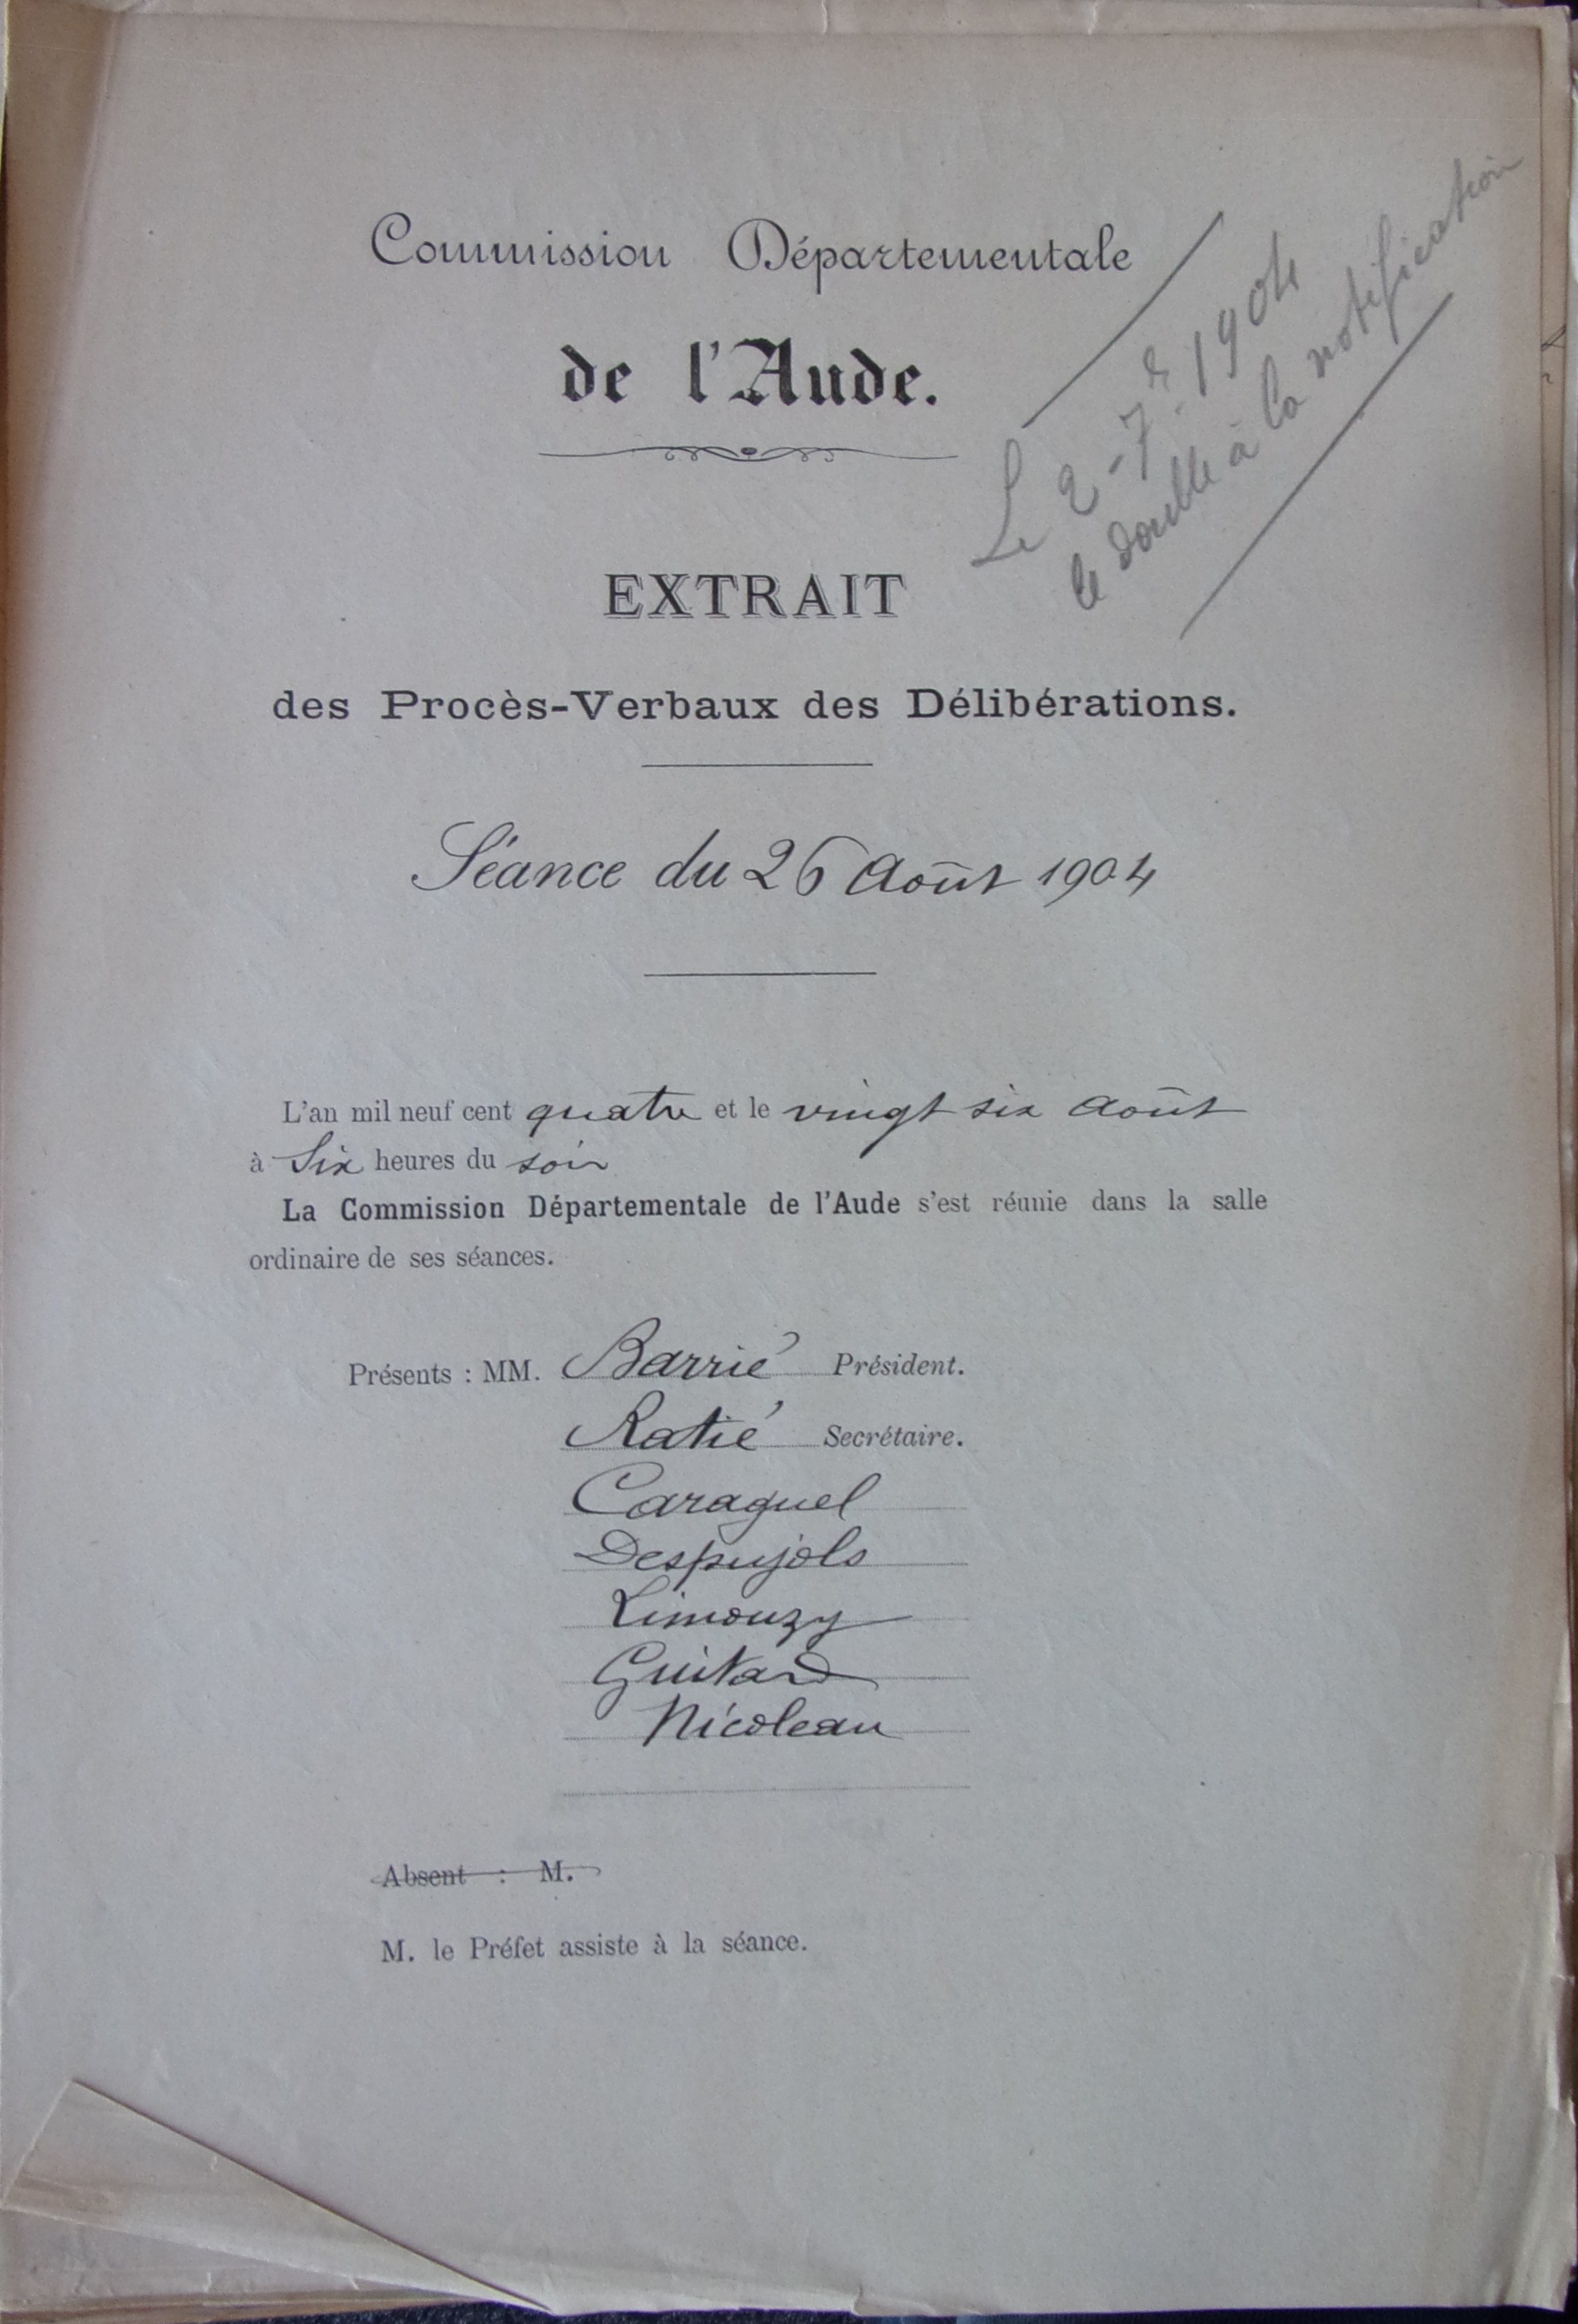 Commission Départementale
de l'Aude.
Le 2 - 7.r 1904
le double à la notification
EXTRAIT
des Procès-Verbaux des Délibérations.
Séance du 26 Août 1904
L'an mil neuf cent quatre et le vingt six Août
à Six heures du soir
La Commission Départementale de l'Aude s'est réunie dans la salle
ordinaire de ses séances.
Présents : MM. Barrié Président.
Ratié Secrétaire.
Caraguel
Despujols
Limouzy
Guitard
Nicoleau
Absent : M.
M. le Préfet assiste à la séance.